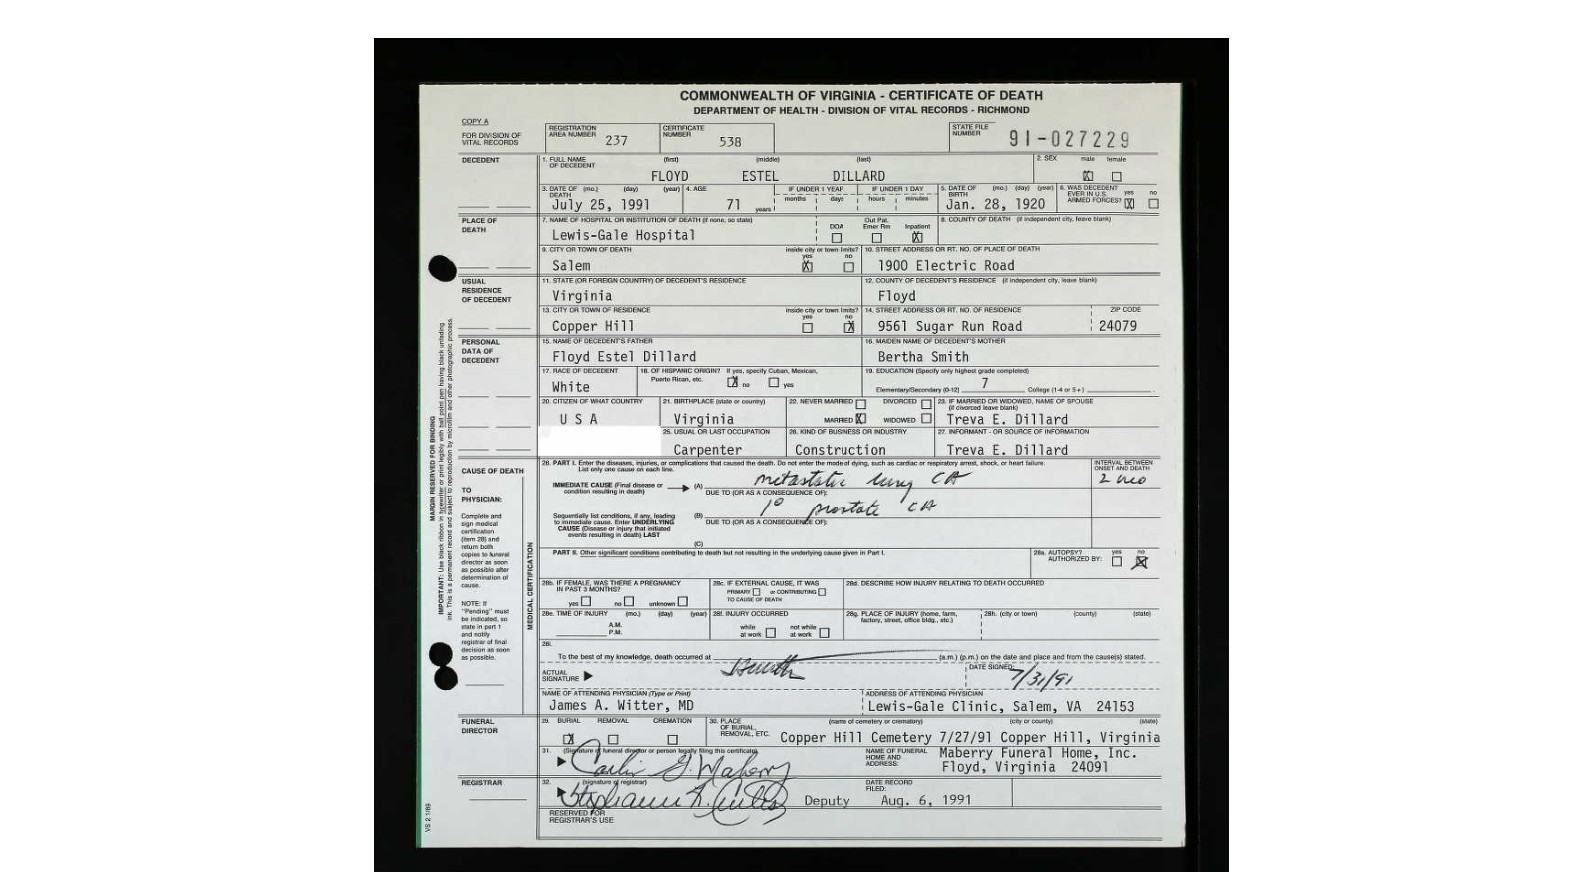 COMMONWEALTH OF VIRGINIA - CERTIFICATE OF DEATH
DEPARTMENT OF HEALTH - DIVISION OF VITAL RECORDS - RICHMOND
COPY A
FOR DIVISION OF VITAL RECORDS
REGISTRATION AREA NUMBER 237
CERTIFICATE NUMBER 538
STATE FILE NUMBER 91-027229
DECEDENT
1. FULL NAME OF DECEDENT (first) (middle) (last)
FLOYD ESTEL DILLARD
2. SEX male female X
3. DATE OF DEATH (mo.) (day) (year)
July 25, 1991
4. AGE 71 years
IF UNDER 1 YEAR months days
IF UNDER 1 DAY hours minutes
5. DATE OF BIRTH (mo.) (day) (year)
Jan. 28, 1920
6. WAS DECEDENT EVER IN U.S. ARMED FORCES? yes no X
PLACE OF DEATH
7. NAME OF HOSPITAL OR INSTITUTION OF DEATH (if none, so state)
Lewis-Gale Hospital
DOA Out Pat. Emer Rm Inpatient X
8. COUNTY OF DEATH (if independent city, leave blank)
9. CITY OR TOWN OF DEATH
Salem
inside city or town limits? yes no X
10. STREET ADDRESS OR RT. NO. OF PLACE OF DEATH
1900 Electric Road
USUAL RESIDENCE OF DECEDENT
11. STATE (OR FOREIGN COUNTRY) OF DECEDENT'S RESIDENCE
Virginia
12. COUNTY OF DECEDENT'S RESIDENCE (if independent city, leave blank)
Floyd
13. CITY OR TOWN OF RESIDENCE
Copper Hill
inside city or town limits? yes no X
14. STREET ADDRESS OR RT. NO. OF RESIDENCE
9561 Sugar Run Road
ZIP CODE
24079
PERSONAL DATA OF DECEDENT
15. NAME OF DECEDENT'S FATHER
Floyd Estel Dillard
16. MAIDEN NAME OF DECEDENT'S MOTHER
Bertha Smith
17. RACE OF DECEDENT
White
18. OF HISPANIC ORIGIN? If yes, specify Cuban, Mexican, Puerto Rican, etc. X no yes
19. EDUCATION (Specify only highest grade completed)
Elementary/Secondary (0-12) 7 College (1-4 or 5+)
20. CITIZEN OF WHAT COUNTRY
U S A
21. BIRTHPLACE (state or country)
Virginia
22. NEVER MARRIED DIVORCED
MARRIED X WIDOWED
23. IF MARRIED OR WIDOWED, NAME OF SPOUSE (if divorced leave blank)
Treva E. Dillard
25. USUAL OR LAST OCCUPATION
Carpenter
26. KIND OF BUSINESS OR INDUSTRY
Construction
27. INFORMANT - OR SOURCE OF INFORMATION
Treva E. Dillard
CAUSE OF DEATH
TO PHYSICIAN:
Complete and sign medical certification (item 28) and return both copies to funeral director as soon as possible after determination of cause.
NOTE: If "Pending" must be indicated, so state in part 1 and notify registrar of final decision as soon as possible.
MEDICAL CERTIFICATION
28. PART I. Enter the diseases, injuries, or complications that caused the death. Do not enter the mode of dying, such as cardiac or respiratory arrest, shock, or heart failure. List only one cause on each line.
INTERVAL BETWEEN ONSET AND DEATH
IMMEDIATE CAUSE (Final disease or condition resulting in death) (A) metastatic lung CA 2 mo
DUE TO (OR AS A CONSEQUENCE OF):
Sequentially list conditions, if any, leading to immediate cause. Enter UNDERLYING CAUSE (Disease or injury that initiated events resulting in death) LAST
(B) 1° prostate CA
DUE TO (OR AS A CONSEQUENCE OF):
(C)
PART II. Other significant conditions contributing to death but not resulting in the underlying cause given in Part I.
28a. AUTOPSY? AUTHORIZED BY: yes no X
28b. IF FEMALE, WAS THERE A PREGNANCY IN PAST 3 MONTHS? yes no unknown
28c. IF EXTERNAL CAUSE, IT WAS PRIMARY or CONTRIBUTING TO CAUSE OF DEATH
28d. DESCRIBE HOW INJURY RELATING TO DEATH OCCURRED
28e. TIME OF INJURY (mo.) (day) (year) A.M. P.M.
28f. INJURY OCCURRED while at work not while at work
28g. PLACE OF INJURY (home, farm, factory, street, office bldg., etc.)
28h. (city or town) (county) (state)
28i.
To the best of my knowledge, death occurred at (a.m.) (p.m.) on the date and place and from the cause(s) stated.
ACTUAL SIGNATURE
DATE SIGNED: 7/31/91
NAME OF ATTENDING PHYSICIAN (Type or Print)
James A. Witter, MD
ADDRESS OF ATTENDING PHYSICIAN
Lewis-Gale Clinic, Salem, VA 24153
FUNERAL DIRECTOR
29. BURIAL REMOVAL CREMATION X
30. PLACE OF BURIAL, REMOVAL, ETC. (name of cemetery or crematory) (city or county) (state)
Copper Hill Cemetery 7/27/91 Copper Hill, Virginia
31. (Signature of funeral director or person legally filing this certificate)
NAME OF FUNERAL HOME AND ADDRESS:
Maberry Funeral Home, Inc.
Floyd, Virginia 24091
REGISTRAR
32. (signature of registrar)
Deputy
DATE RECORD FILED:
Aug. 6, 1991
RESERVED FOR REGISTRAR'S USE
VS 2 1/89
MARGIN RESERVED FOR BINDING
IMPORTANT: Use black ribbon in typewriter or print legibly with ball point pen having black unfading ink. This is permanent record and subject to reproduction by microfilm and other photographic process.